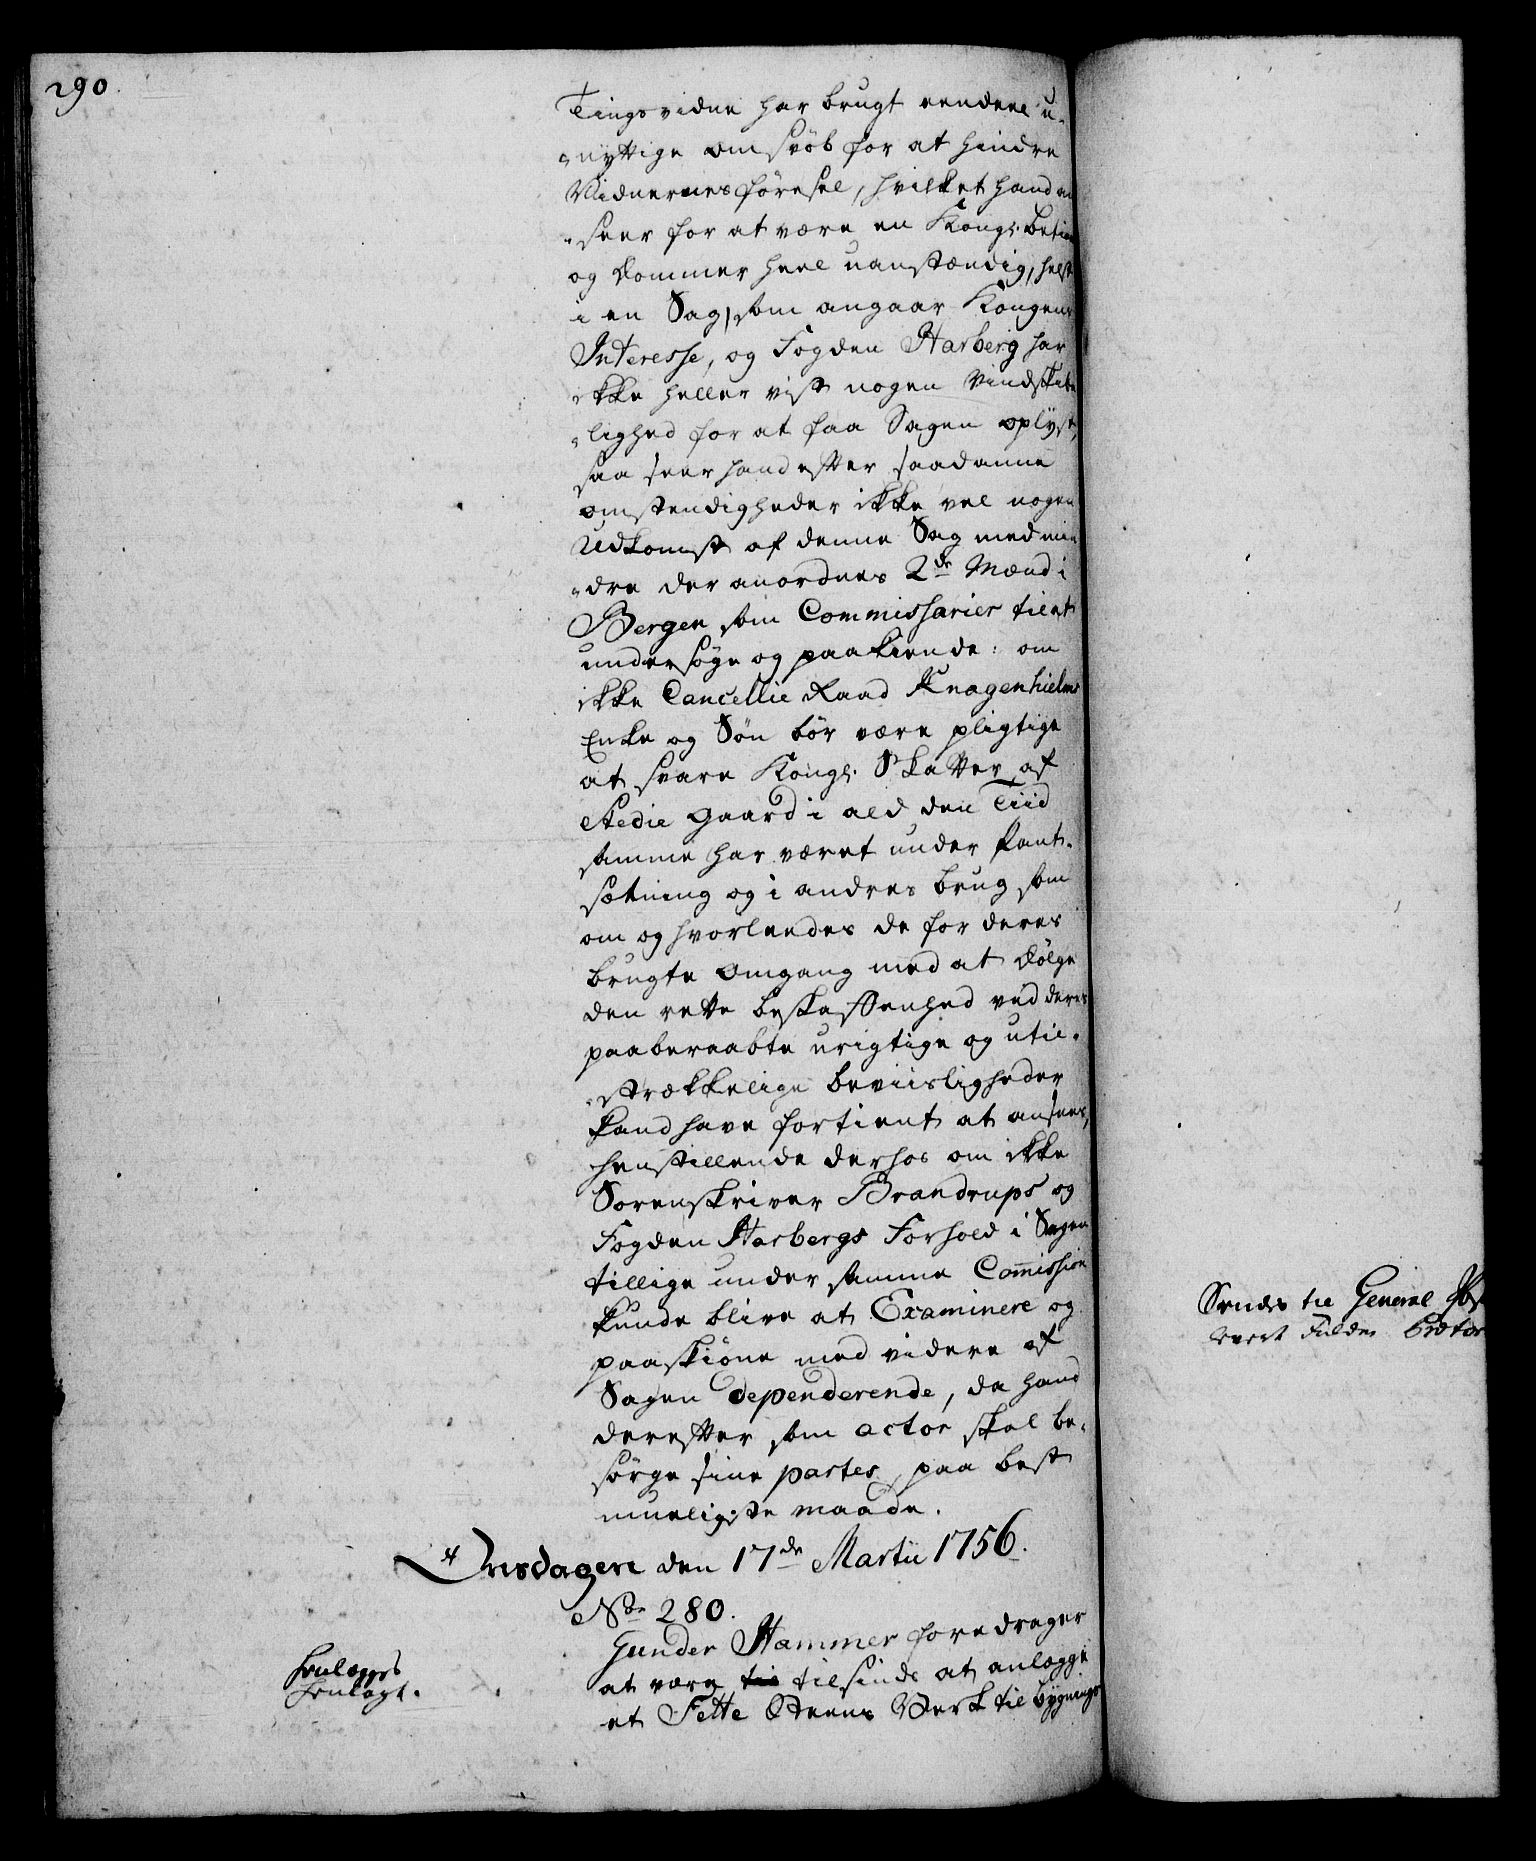 290.
Tingsvidne har brugt eendeel u-
nyttige omsvøb for at hindre
Vidnernes førelse, hvilket hand an
seer for at være en Kongl: betient
og Dommer heel uanstændig, helst
i en Sag, som angaar Kongens
Interesse, og Fogden Harberg har
ikke heller vist nogen Vindskibe
lighed for at faa Sagen oplyst,
saa seer hand efter saadanne
omstendigheder ikke vel nogen
Udkomst af denne Sag med min
dre der anordnes 2de Mænd i
Bergen som Commissarier til at
undersøge og paakiende: om
ikke Cancellie Raad Knagenhielms
Enke og Søn bør være pligtige
at svare Kongl: Skatter af
Stedie gaard i ald den Tiid
samme har været under Pant-
sætning og i andres brug som
om og hvorleedes de for deres
brugte omgang med at dølge
den rette beskaffenhed ved deres
paaberaabte urigtige og util-
strækkelige beviisligheder
kand have fortient at ansees,
henstillende derhos om ikke
Sorenskriver Brandrups og
Fogden Harbergs Forhold i Sagen
tillige under samme Commission
kunde blive at Examinere og
paaskiøne med videre af
Sagen dependerende, da hand
derefter som actor skal be-
sørge sine partes paa best
mueligste maade.
Onsdagen den 17de Martii 1756.
No 280.
Gunder Hammer foredrager
at være til tilsinds at anlægge
et Fette Steens Verk til bygnings
henlægges
henlagt.
Sendes til General